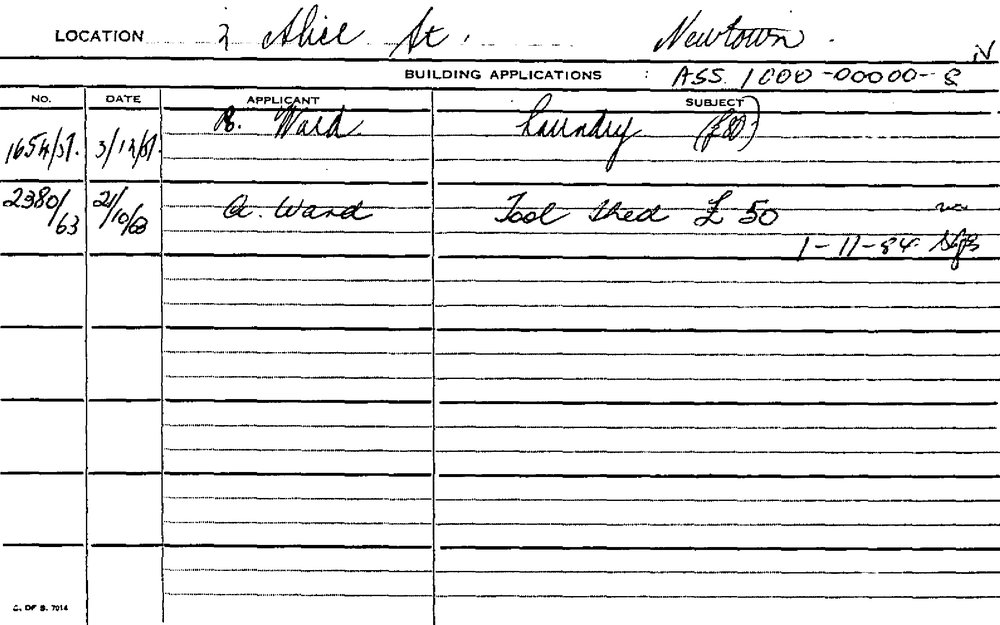 LOCATION 2 Alice St. Newtown. N
BUILDING APPLICATIONS : ASS. 1000-00000-8
NO. DATE APPLICANT SUBJECT
Ward Laundry
2380/63 21/10/63 A. Ward Tool Shed £ 50
1-11-84
C. OF S. 7014